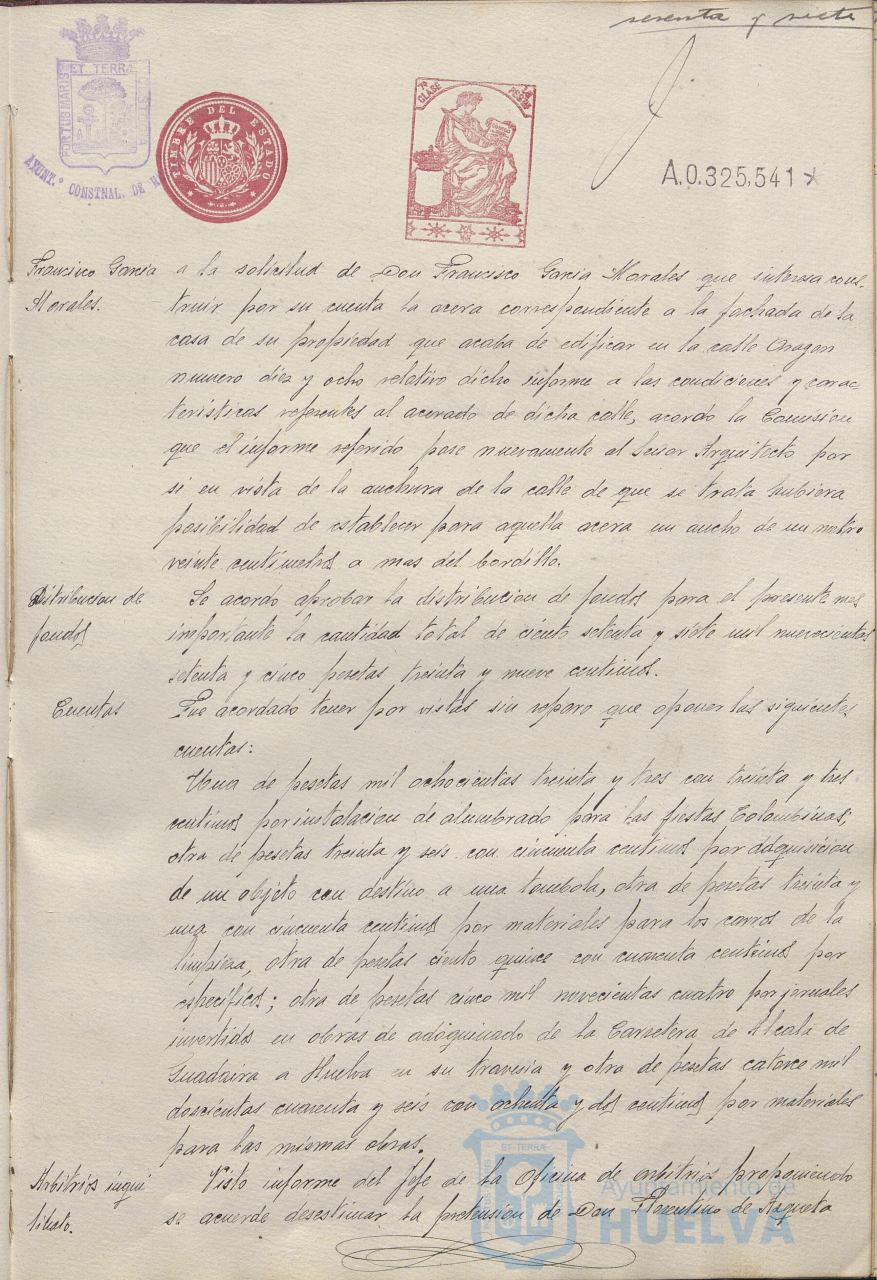 sesenta y siete
ET TERRÆ
PORTUS MARIS
CUSTODIA
AYUNT.º CONSTNAL. DE H
TIMBRE DEL ESTADO
7ª CLASE
PESETA
A.0.325,541
Francisco Garcia
Morales.
a la solicitud de Don Francisco Garcia Morales que interesa cons-
truir por su cuenta la acera correspondiente a la fachada de la
casa de su propiedad que acaba de edificar en la calle Aragon
numero diez y ocho relativo dicho informe a las condiciones y carac-
teristicas referentes al acerado de dicha calle, acordo la Comision
que el informe referido pase nuevamente al Señor Arquitecto por
si en vista de la anchura de la calle de que se trata hubiera
posibilidad de establecer para aquella acera un ancho de un metro
veinte centimetros a mas del bordillo.
Distribucion de
fondos
Se acordo aprobar la distribucion de fondos para el presente mes
importante la cantidad total de ciento setenta y siete mil nuevecientas
setenta y cinco pesetas treinta y nueve centimos.
Cuentas
Fue acordado tener por vistas sin reparo que oponer las siguientes
cuentas:
Una de pesetas mil ochocientas treinta y tres con treinta y tres
centimos por instalacion de alumbrado para las fiestas Colombinas;
otra de pesetas treinta y seis con cincuenta centimos por adquisicion
de un objeto con destino a una tombola, otra de pesetas treinta y
una con cincuenta centimos por materiales para los carros de la
limpieza, otra de pesetas ciento quince con cuarenta centimos por
especificos; otra de pesetas cinco mil novecientas cuatro por jornales
invertidos en obras de adoquinado de la Carretera de Alcalá de
Guadaira a Huelva en su travesia y otra de pesetas catorce mil
doscientas cuarenta y seis con ochenta y dos centimos por materiales
para las mismas obras.
Arbitrios inqui
linato.
Visto informe del Jefe de la Oficina de arbitrios proponiendo
se acuerde desestimar la pretension de Don Florentino de Azqueta
ET TERRÆ
Ayuntamiento de
HUELVA